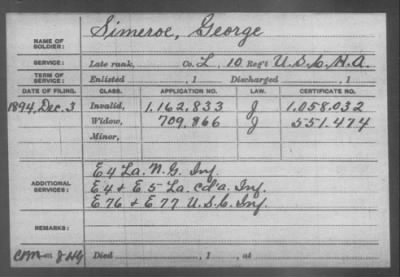 NAME OF SOLDIER: Simeroe, George
SERVICE: Late rank, Co. L, 10 Reg't U.S.C.H.A.
TERM OF SERVICE: Enlisted , 1 Discharged , 1
DATE OF FILING. CLASS. APPLICATION NO. LAW. CERTIFICATE NO.
1894, Dec. 3 Invalid, 1,162,833 J 1,058.032
Widow, 709,866 J 551.474
Minor,
ADDITIONAL SERVICES: E 4 La. N. G. Inf.
E. 4 & E 5 La. Cd'a. Inf.
E 76 & E 77 U.S.C. Inf.
REMARKS:
Died , 1 , at